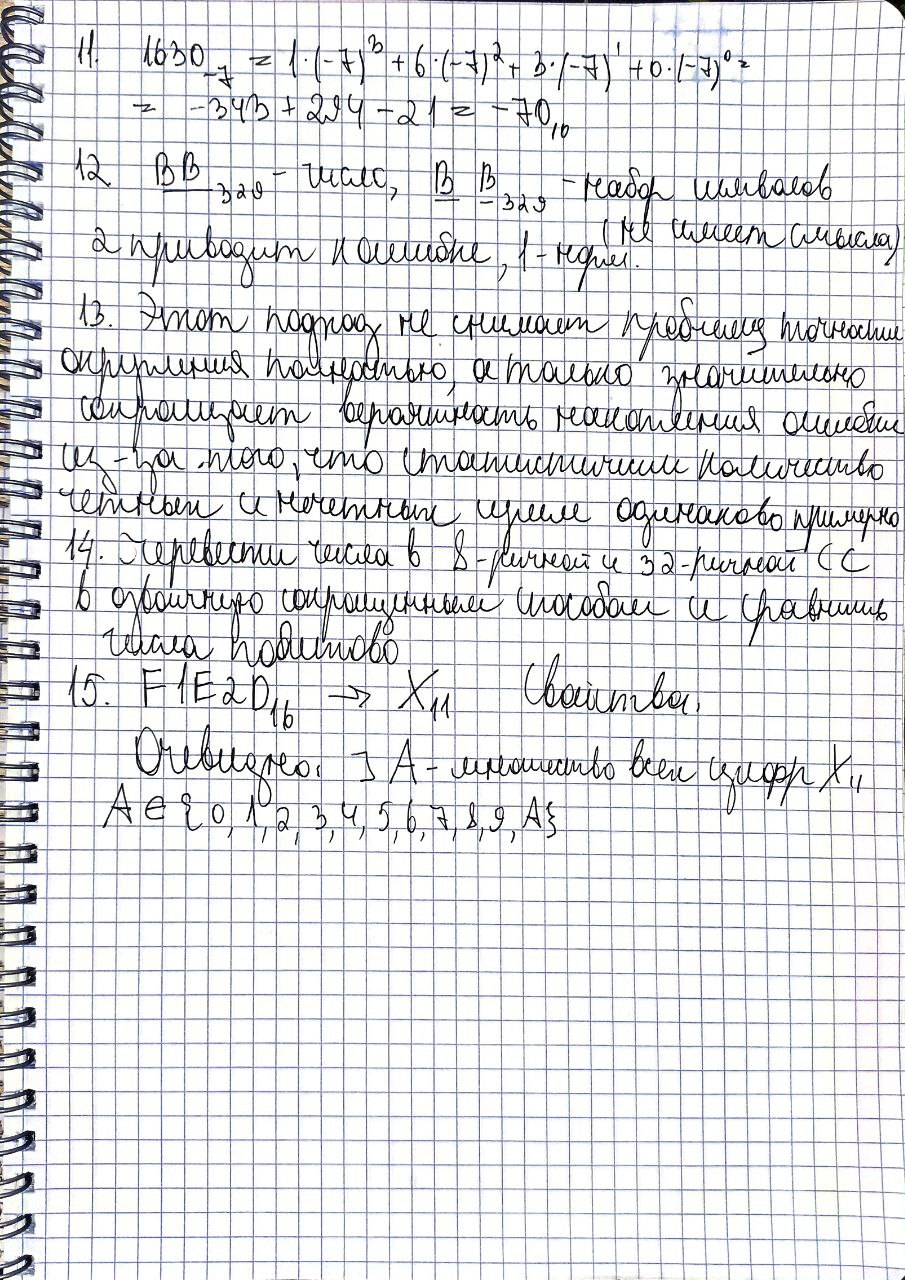 11. 1630₋₇ = 1·(-7)³ + 6·(-7)² + 3·(-7)¹ + 0·(-7)⁰ =
= -343 + 294 - 21 = -70₁₀
12 BB₃₂₉ - число, B B₃₂₉ - набор символов
(не имеет смысла)
2 приводит к ошибке, 1 - норм.
13. Этот подход не снимает проблему точности
округления полностью, а только значительно
сокращает вероятность накопления ошибки
из-за того, что статистически количество
четных и нечетных цифр одинаково примерно
14. Перевести числа в 8-ричной и 32-ричной СС
в двоичную сокращенным способом и сравнить
числа побитово
15. F1E2D₁₆ → X₁₁ Свойства.
Очевидно. ] A - множество всех цифр X₁₁
A ∈ {0, 1, 2, 3, 4, 5, 6, 7, 8, 9, A}